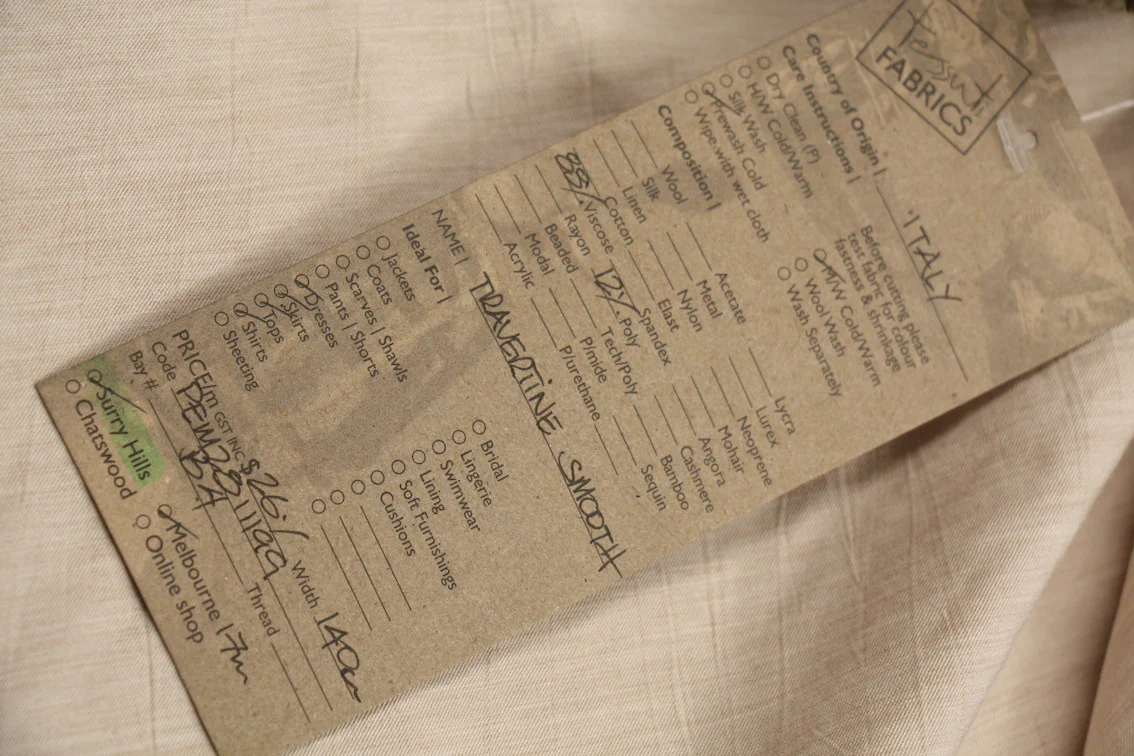 Tessuti
FABRICS
Country of Origin | ITALY
Care Instructions | Before cutting please
test fabric for colour
fastness & shrinkage
Dry Clean (P)
H/W Cold/Warm
Silk Wash
Prewash Cold
Wipe with wet cloth
M/W Cold/Warm
Wool Wash
Wash Separately
Composition |
Wool
Silk
Linen
Cotton
88% Viscose
Rayon
Beaded
Modal
Acrylic
Acetate
Metal
Nylon
Elast
Spandex
12% Poly
Tech/Poly
P/mide
P/urethane
Lycra
Lurex
Neoprene
Mohair
Angora
Cashmere
Bamboo
Sequin
NAME | TRAVERTINE SMOOTH
Ideal For |
Jackets
Coats
Scarves | Shawls
Pants | Shorts
Dresses
Skirts
Tops
Shirts
Sheeting
Bridal
Lingerie
Swimwear
Lining
Soft Furnishings
Cushions
PRICE/m GST INC $ Width 140m
Code
Bay # B4 Thread
Surry Hills
Chatswood
Melbourne 17m
Online shop